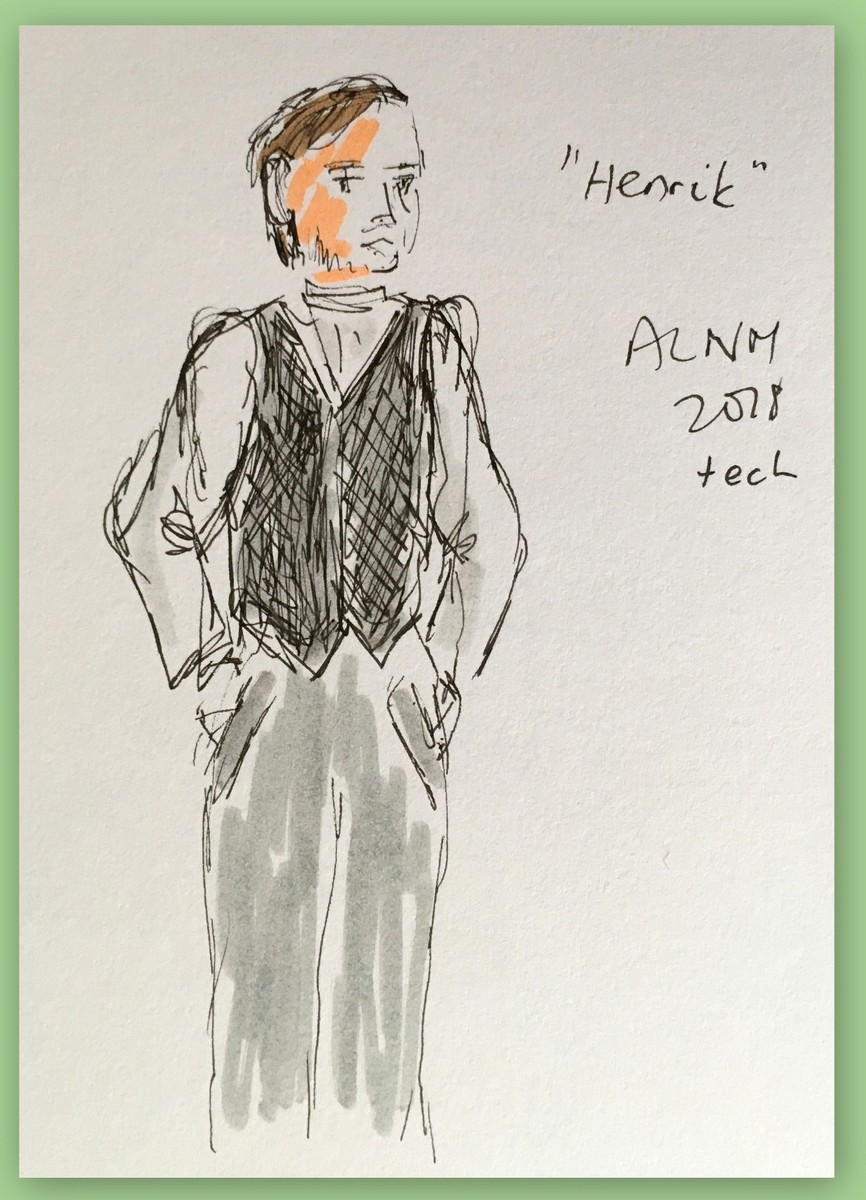 "Henrik"
ALNM
2018
tech